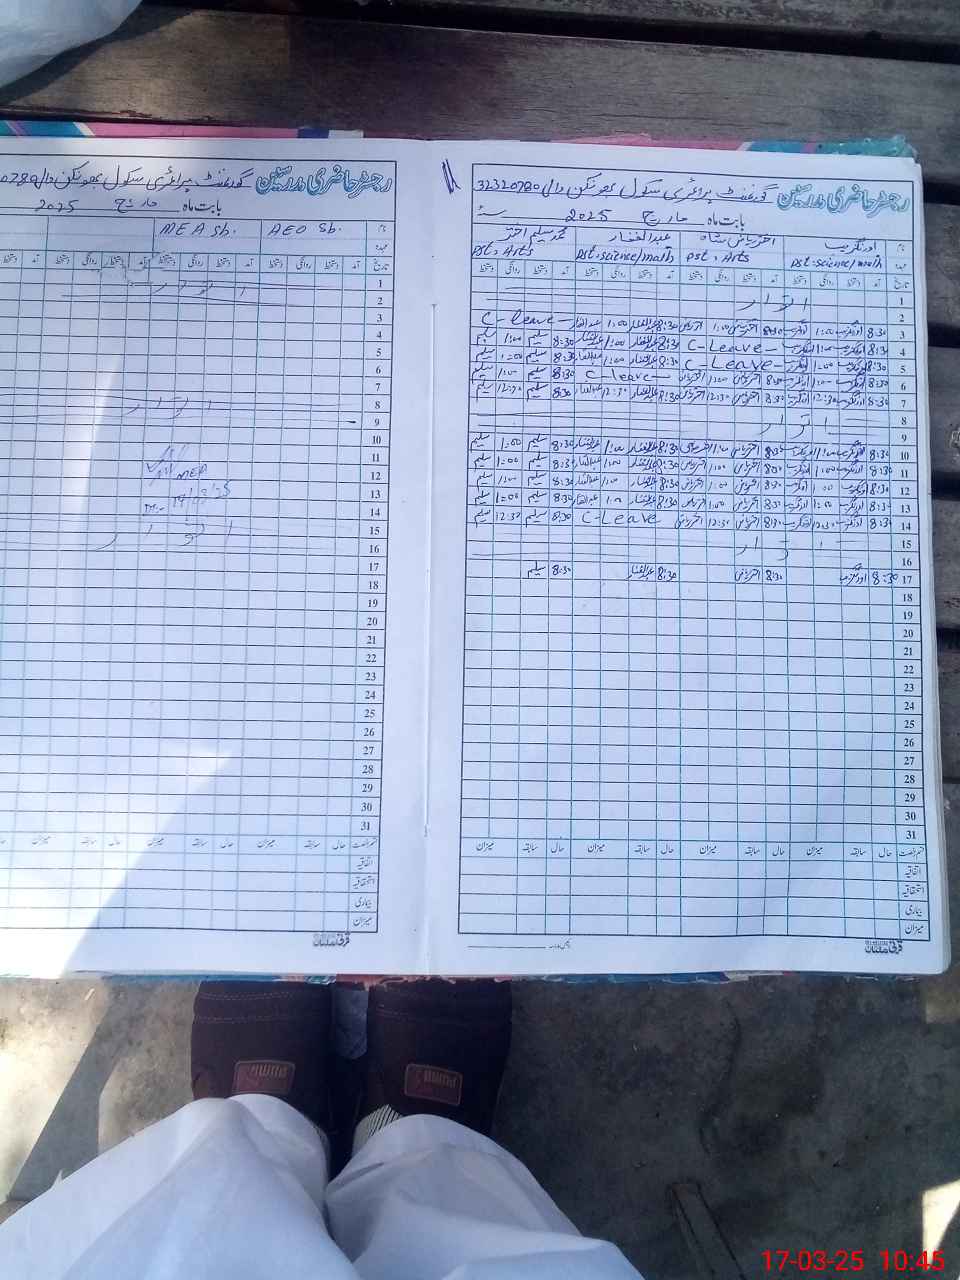 رجسٹر حاضری مدرسین گورنمنٹ پرائمری سکول بھونکن وال 32320780
بابت ماہ مارچ 2025
نام اورنگزیب اختر ریاض شاہ عبدالغفار محمد سلیم اختر
عہدہ Pst:science/math Pst:Arts Pst:science/math Pst:Arts
تاریخ آمد دستخط روانگی دستخط آمد دستخط روانگی دستخط آمد دستخط روانگی دستخط آمد دستخط روانگی دستخط
1
اتوار
2
3 8:30 اورنگزیب 1:00 اورنگزیب 8:30 اختر ریاض 1:00 اختر ریاض 8:30 عبدالغفار 1:00 عبدالغفار C-leave
4 8:30 اورنگزیب 1:00 اورنگزیب C-Leave 8:30 عبدالغفار 1:00 عبدالغفار 8:30 سلیم 1:00 سلیم
5 8:30 اورنگزیب 1:00 اورنگزیب C-Leave 8:30 عبدالغفار 1:00 عبدالغفار 8:30 سلیم 1:00 سلیم
6 8:30 اورنگزیب 1:00 اورنگزیب 8:30 اختر ریاض 1:00 اختر ریاض C-leave 8:30 سلیم 1:00 سلیم
7 8:30 اورنگزیب 12:30 اورنگزیب 8:30 اختر ریاض 12:30 اختر ریاض 8:30 عبدالغفار 12:30 عبدالغفار 8:30 سلیم 12:30 سلیم
8
اتوار
9
10 8:30 اورنگزیب 1:00 اورنگزیب 8:30 اختر ریاض 1:00 اختر ریاض 8:30 عبدالغفار 1:00 عبدالغفار 8:30 سلیم 1:00 سلیم
11 8:30 اورنگزیب 1:00 اورنگزیب 8:30 اختر ریاض 1:00 اختر ریاض 8:30 عبدالغفار 1:00 عبدالغفار 8:30 سلیم 1:00 سلیم
12 8:30 اورنگزیب 1:00 اورنگزیب 8:30 اختر ریاض 1:00 اختر ریاض 8:30 عبدالغفار 1:00 عبدالغفار 8:30 سلیم 1:00 سلیم
13 8:30 اورنگزیب 1:00 اورنگزیب 8:30 اختر ریاض 1:00 اختر ریاض 8:30 عبدالغفار 1:00 عبدالغفار 8:30 سلیم 1:00 سلیم
14 8:30 اورنگزیب 12:30 اورنگزیب 8:30 اختر ریاض 12:30 اختر ریاض C-Leave 8:30 سلیم 12:30 سلیم
15
اتوار
16
17 8:30 اورنگزیب 8:30 اختر ریاض 8:30 عبدالغفار 8:30 سلیم
18
19
20
21
22
23
24
25
26
27
28
29
30
31
قسم رخصت حال سابقہ میزان حال سابقہ میزان حال سابقہ میزان حال سابقہ میزان
اتفاقیہ
استحقاقیہ
بیماری
میزان
رجسٹر حاضری مدرسین گورنمنٹ پرائمری سکول بھونکن وال
بابت ماہ مارچ 2025
نام AEO Sb. MEA Sb.
عہدہ
تاریخ آمد دستخط روانگی دستخط آمد دستخط روانگی دستخط آمد دستخط روانگی دستخط آمد
1
اتوار
2
3
4
5
6
7
8
اتوار
9
10
11
12 MEA
13
14
15
اتوار
16
17
18
19
20
21
22
23
24
25
26
27
28
29
30
31
قسم رخصت حال سابقہ میزان حال سابقہ میزان حال سابقہ میزان
اتفاقیہ
استحقاقیہ
بیماری
میزان
PUMA
PUMA
17-03-25 10:45